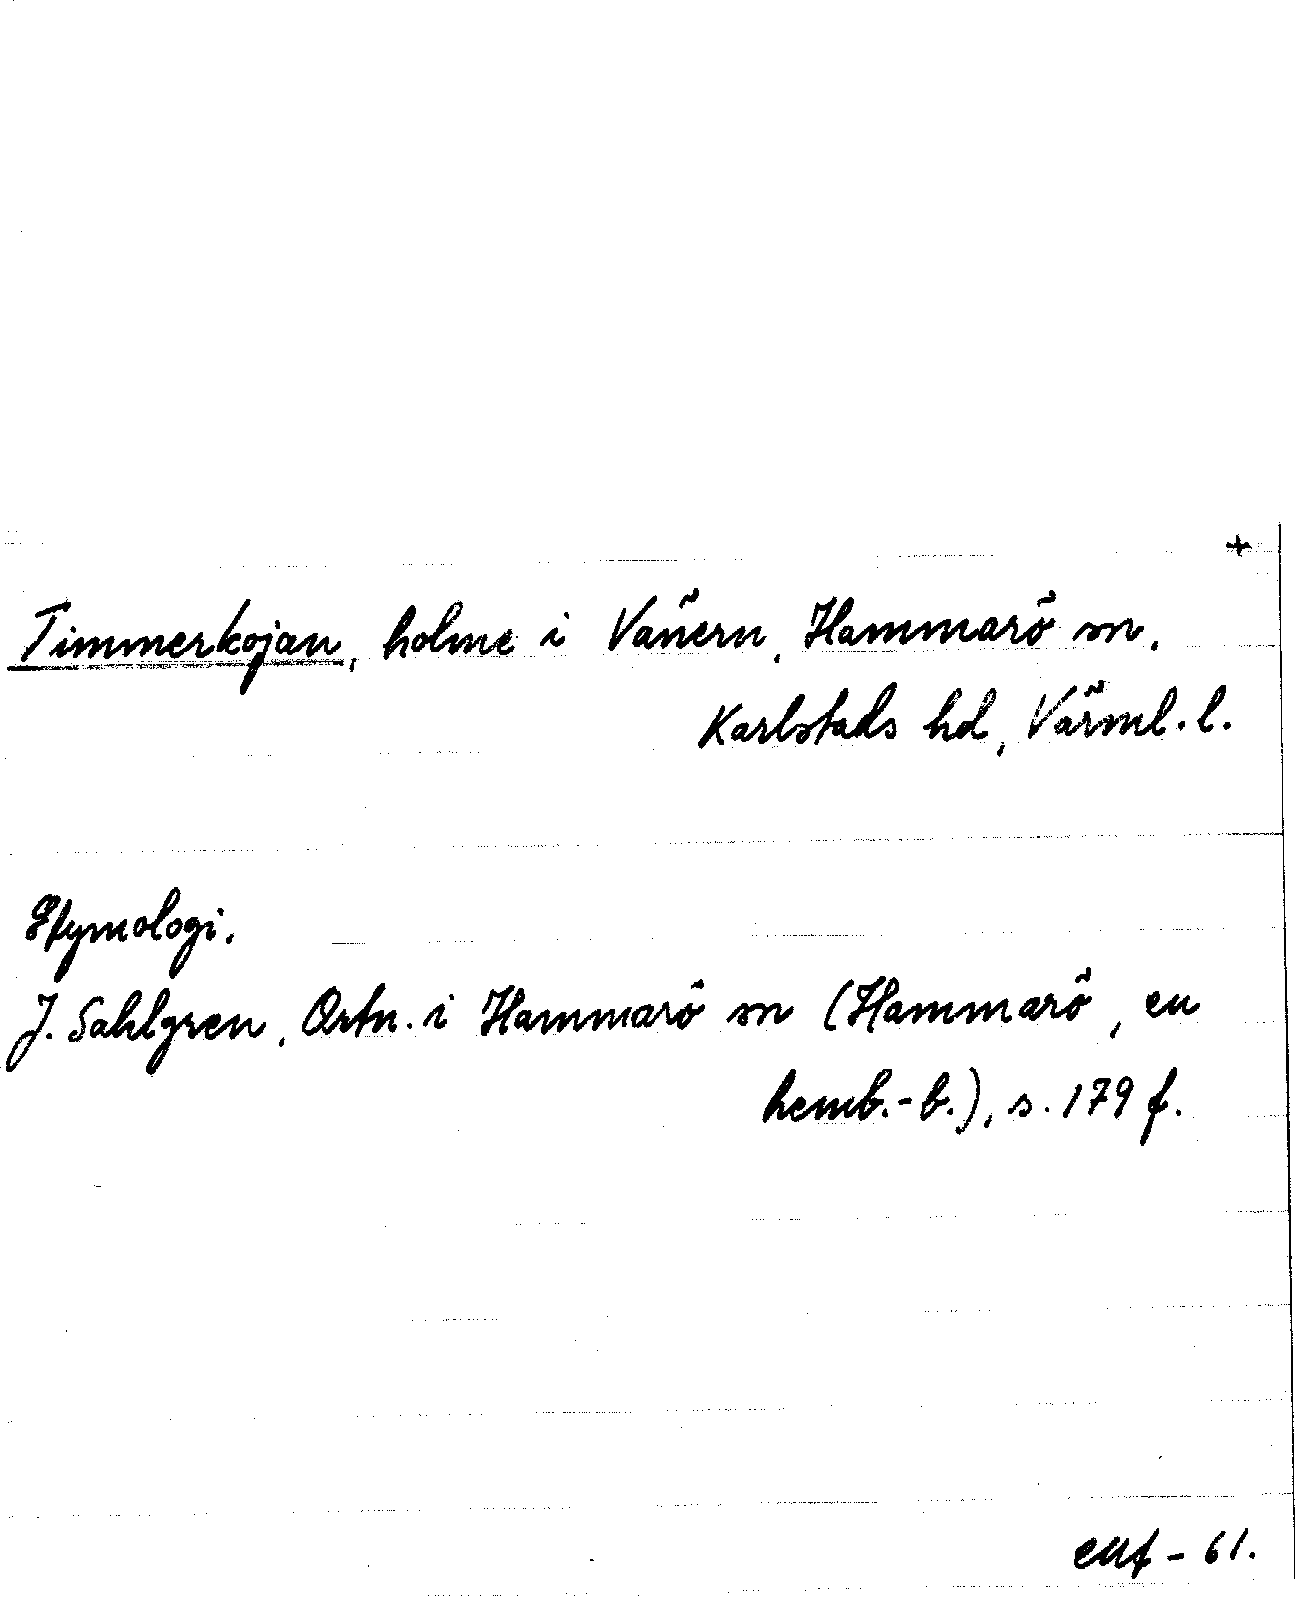 +
Timmerkojan, holme i Vänern, Hammarö sn,
Karlstads hd, Värml. l.
Etymologi.
J. Sahlgren, Ortn. i Hammarö sn (Hammarö, en
hemb.-b.), s. 179 f.
- 61.